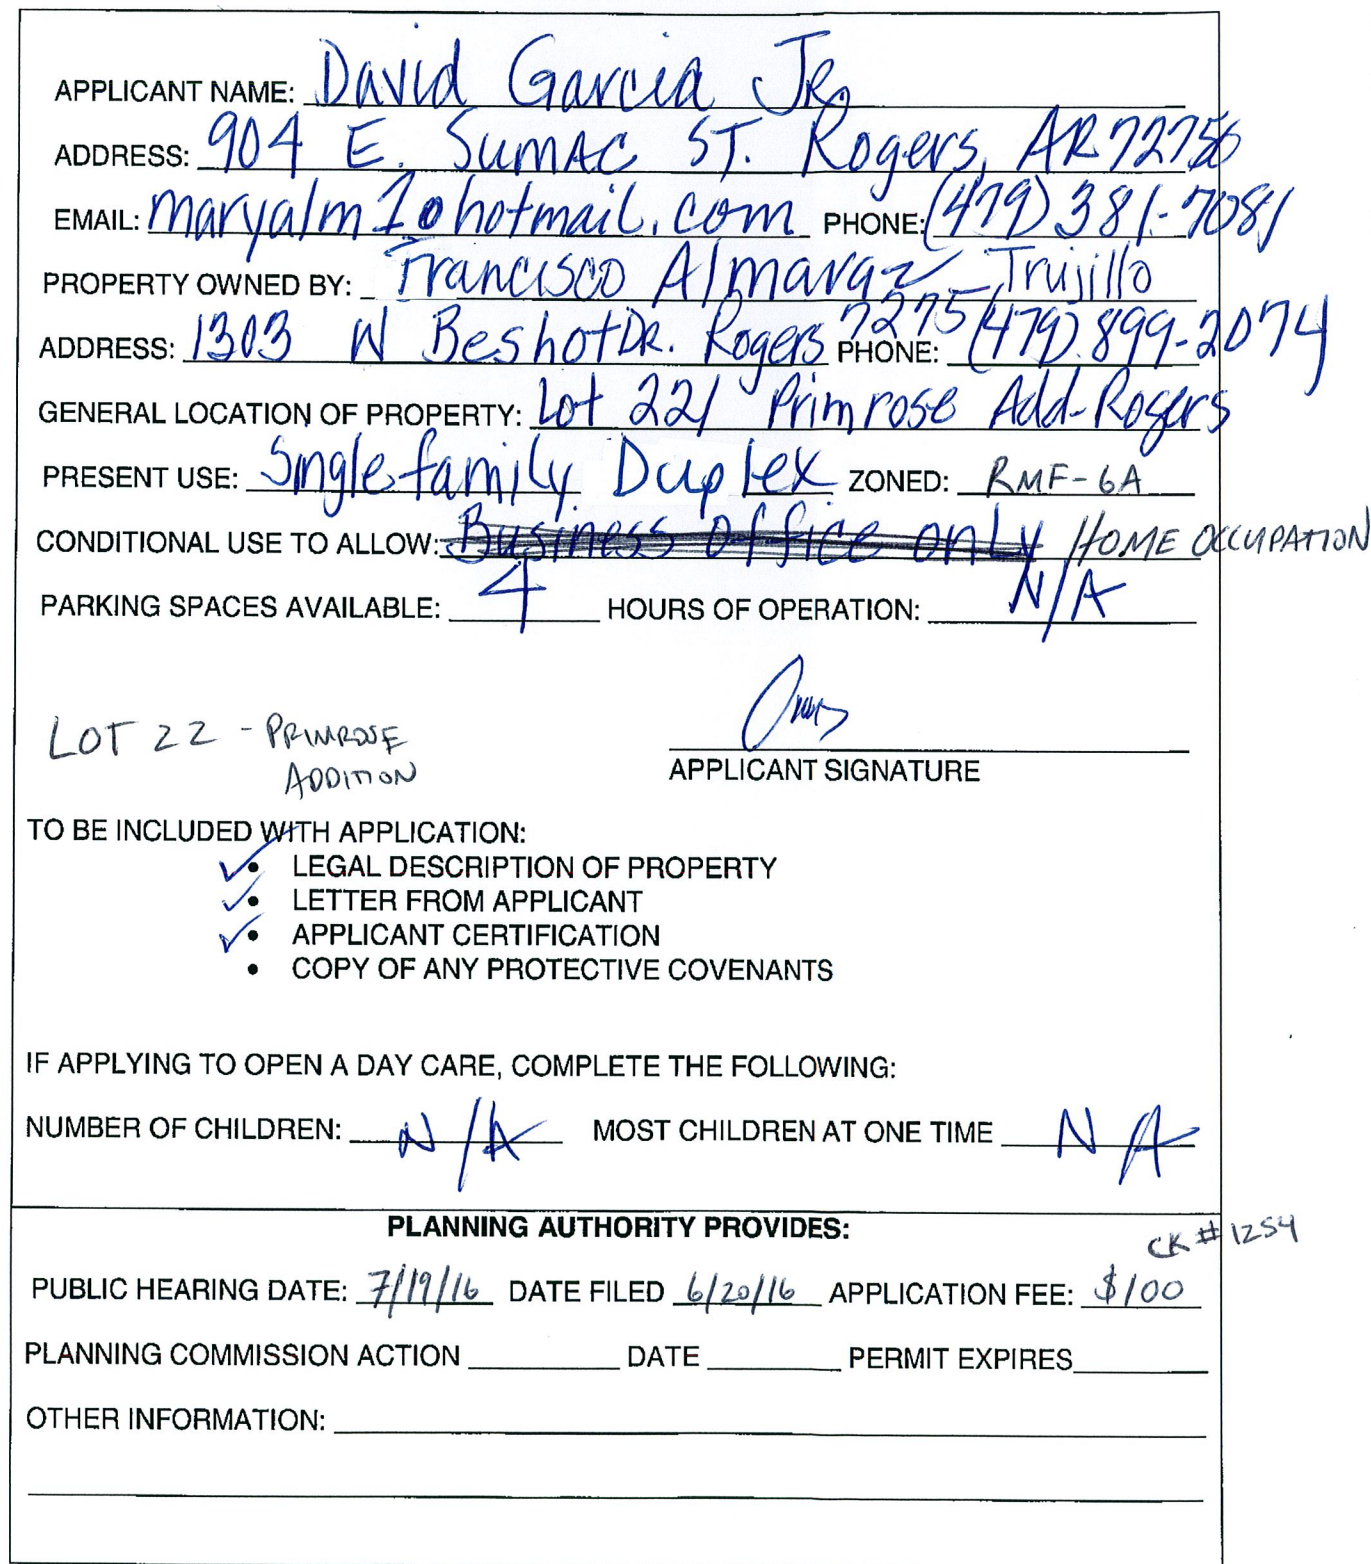 APPLICANT NAME: David Garcia JR.
ADDRESS: 904 E. Sumac ST. Rogers, AR 72756
EMAIL: maryalm1@hotmail.com PHONE: (479) 381-7081
PROPERTY OWNED BY: Francisco Almaraz Trujillo
ADDRESS: 1303 W Beshot DR. Rogers 7275 PHONE: (479) 899-2074
GENERAL LOCATION OF PROPERTY: Lot 22/ Primrose Add-Rogers
PRESENT USE: Single family Duplex ZONED: RMF-6A
CONDITIONAL USE TO ALLOW: Business office only HOME OCCUPATION
PARKING SPACES AVAILABLE: 4 HOURS OF OPERATION: N/A
LOT 22 - PRIMROSE
ADDITION
APPLICANT SIGNATURE
TO BE INCLUDED WITH APPLICATION:
• LEGAL DESCRIPTION OF PROPERTY
• LETTER FROM APPLICANT
• APPLICANT CERTIFICATION
• COPY OF ANY PROTECTIVE COVENANTS
IF APPLYING TO OPEN A DAY CARE, COMPLETE THE FOLLOWING:
NUMBER OF CHILDREN: N/A MOST CHILDREN AT ONE TIME N A
PLANNING AUTHORITY PROVIDES:
CK # 1254
PUBLIC HEARING DATE: 7/19/16 DATE FILED 6/20/16 APPLICATION FEE: $100
PLANNING COMMISSION ACTION DATE PERMIT EXPIRES
OTHER INFORMATION: